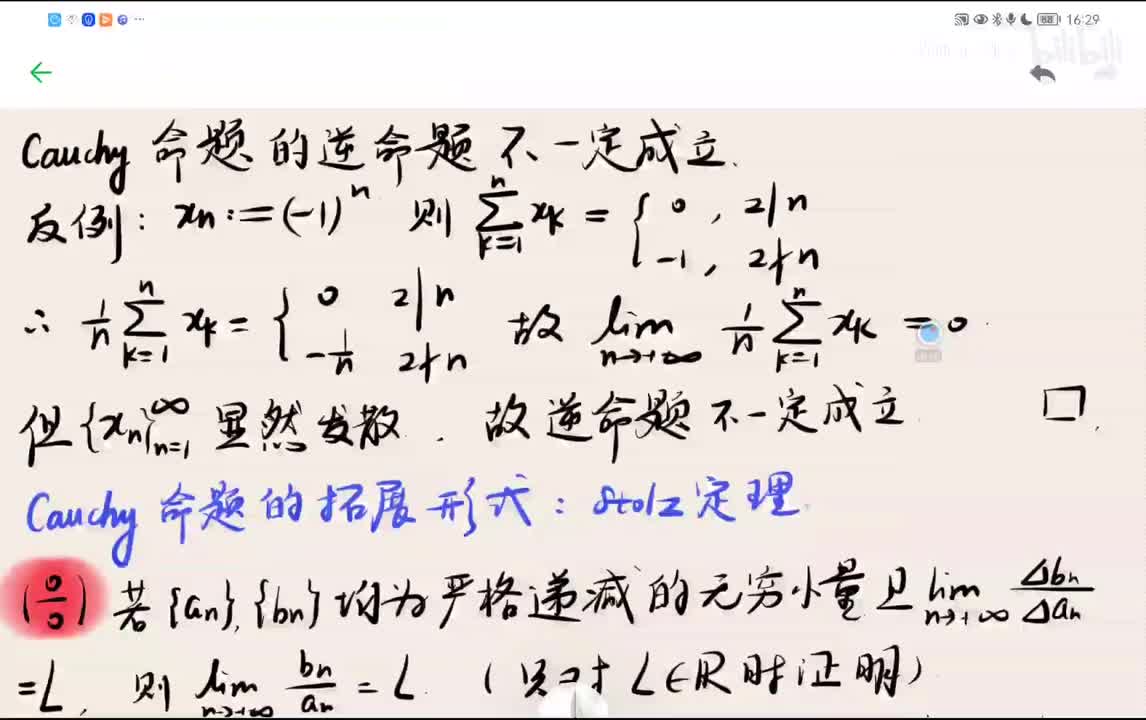 16:29
bilibili
Cauchy 命题的逆命题不一定成立.
反例: xn:=(-1)^n 则 ∑_{k=1}^{n} xk = { 0, 2|n ; -1, 2∤n
∴ 1/n ∑_{k=1}^{n} xk = { 0 2|n ; -1/n 2∤n 故 lim_{n→+∞} 1/n ∑_{k=1}^{n} xk = 0.
但{xn}_{n=1}^{∞} 显然发散. 故逆命题不一定成立. □.
Cauchy 命题的拓展形式: Stolz定理.
(0/0) 若{an},{bn}均为严格递减的无穷小量且 lim_{n→+∞} Δbn/Δan
=L, 则 lim_{n→+∞} bn/an = L. (只对 L∈R时证明)